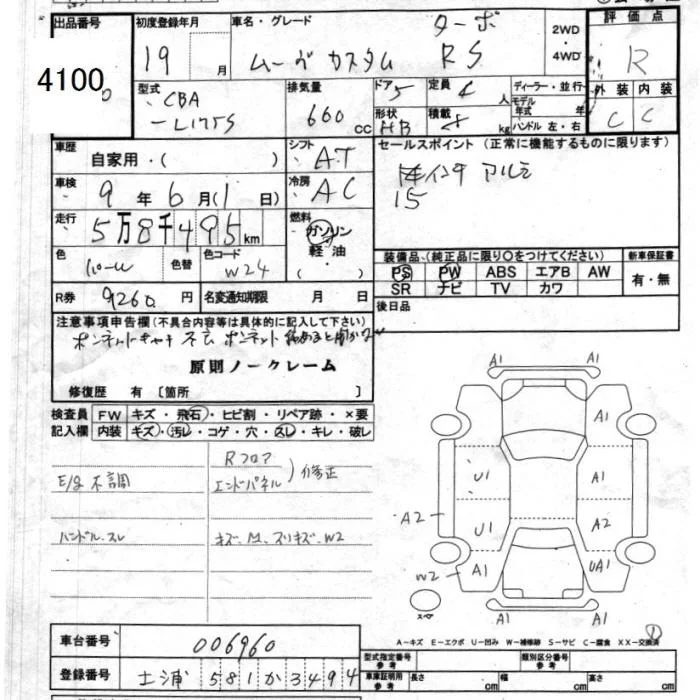 出品番号 4100
初度登録年月 19 月
車名・グレード ムーヴ カスタム ターボ RS
2WD ・ 4WD
評価点 R
型式 CBA -L175S
排気量 660 cc
ドア 5
定員 4 人
形状 HB
積載 kg
ディーラー・並行
モデル年式 年
ハンドル 左・右
外装 C
内装 C
車歴 自家用・( )
シフト AT
セールスポイント (正常に機能するものに限ります)
15インチ アルミ
車検 9年6月(1日)
冷房 AC
走行 5万8千495km
燃料 ガソリン 軽油 ( )
色 パール
色替
色コード W24
装備品、(純正品に限り○をつけてください)
新車保証書
PS PW ABS エアB AW
SR ナビ TV カワ
有・無
R券 9260 円
名変通知期限 月 日
後日品
注意事項申告欄 (不具合内容等は具体的に記入して下さい)
ボンネット ボンネット
原則ノークレーム
修復歴 有 〔箇所 〕
検査員 FW キズ・飛石・ヒビ割・リペア跡・×要
記入欄 内装 キズ・汚レ・コゲ・穴・スレ・キレ・破レ
Rフロア
エンドパネル )修正
E/g 不調
ハンドル.スレ
キズ、M、スリキズ、W2
A1 A1
A1
U1 A1
A2 U1 A2
W2 A1 UA1
スペア
A1 A1
A-キズ E-エクボ U-凹み W-補修跡 S-サビ C-腐食 XX-交換済
車台番号 006960
登録番号 土浦 581 か 3494
型式指定番号 参考
類別区分番号 参考
車庫証明用 参考 長さ cm 幅 cm 高さ cm